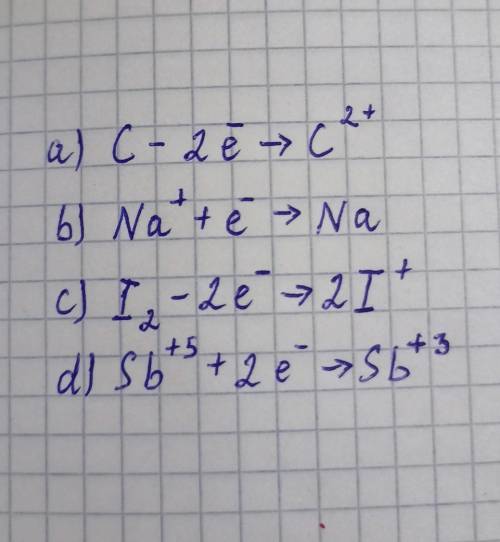 a) C - 2e⁻ → C²⁺
b) Na⁺ + e⁻ → Na
c) I₂ - 2e⁻ → 2I⁺
d) Sb⁺⁵ + 2e⁻ → Sb⁺³